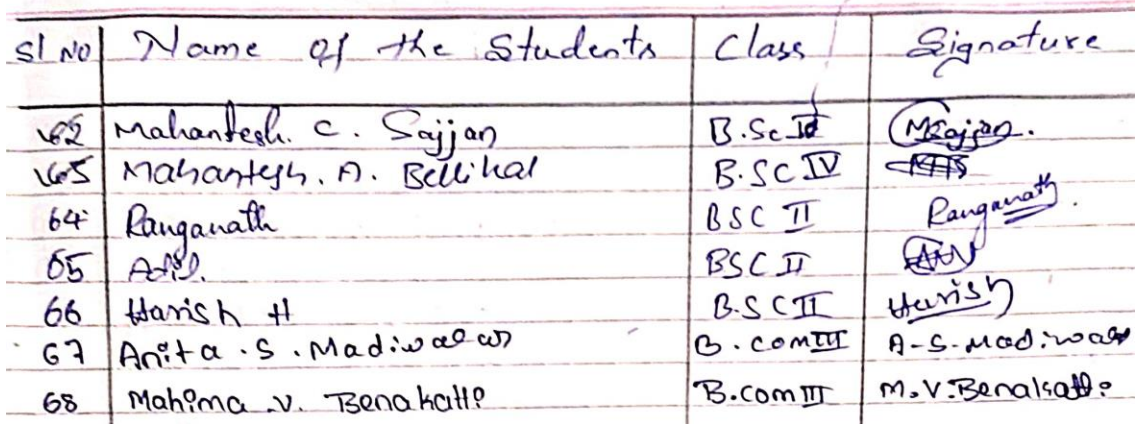 Sl No Name of the Students Class Signature
62 Mahantesh. C. Sajjan B.Sc MSajjan.
65 Mahantesh. A. Bellihal B.SC IV
64 Ranganath BSC II Ranganath.
65 Adil. BSC II
66 Harish H B.S C II Harish
67 Anita .S .Madiwalar B.com III A-S.Madiwalar
68 Mahima .V. Benakatti B.com III M.V.Benakatti